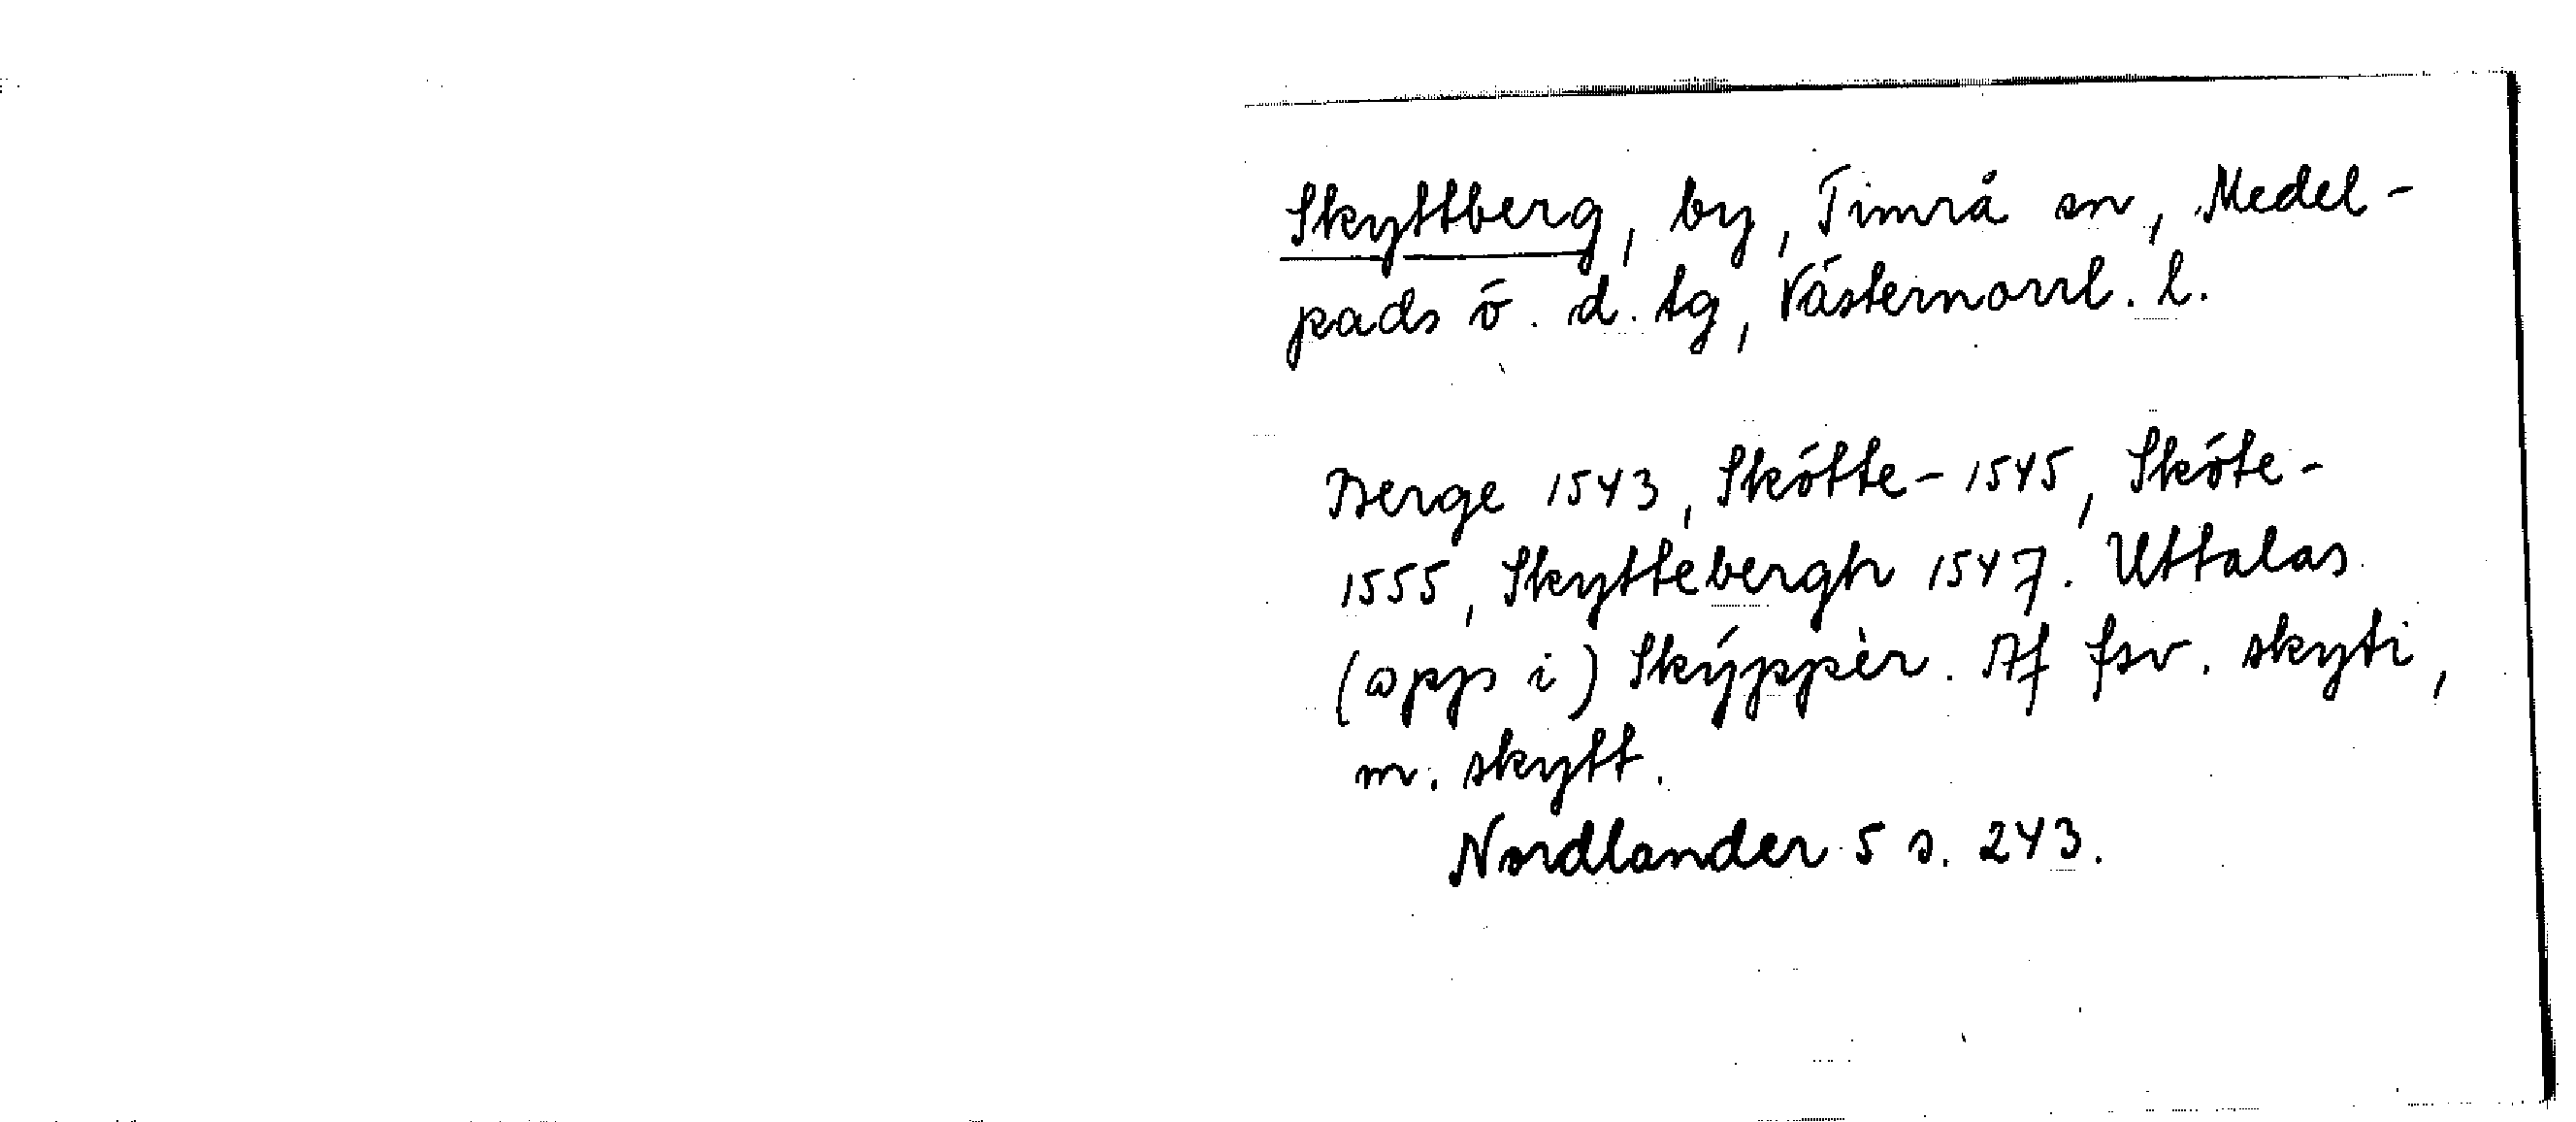 Skyttberg, by, Timrå sn, Medel-
pads ö. d. tg, Västernorrl. l.
Berge 1543, Skötte- 1545, Sköte-
1555, Skyttebergh 1547. Uttalas
(opp i) Skýppèr. Af fsv. skyti,
m. skytt.
Nordlander 5 s. 243.